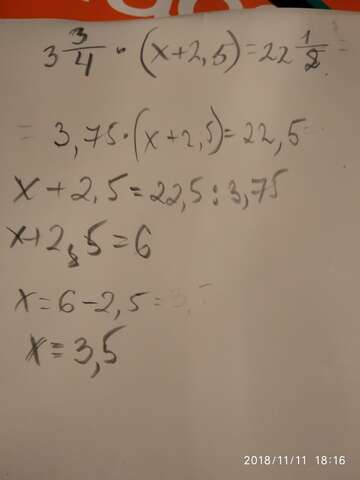 3 3/4 · (x+2,5)=22 1/2 =
= 3,75·(x+2,5)=22,5
x+2,5=22,5:3,75
x+2,5=6
x=6-2,5=3,
x=3,5
2018/11/11 18:16